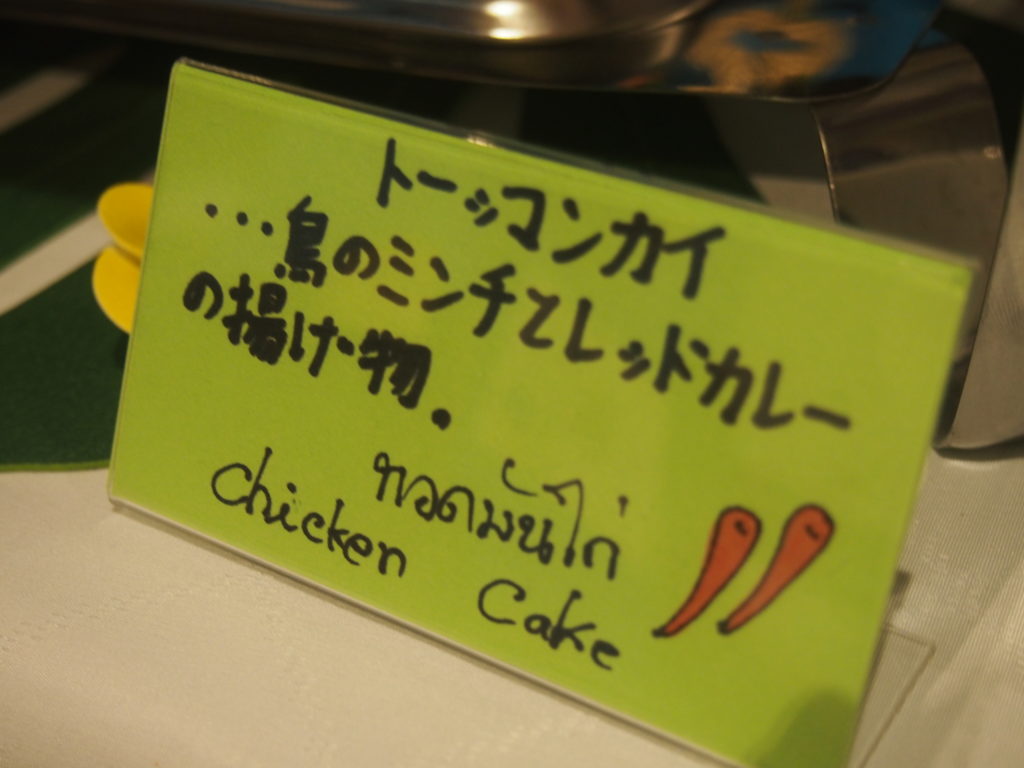 トーッコンカイ
...鳥のミンチとレッドカレー
の揚げ物.
ทอดมันไก่
Chicken Cake